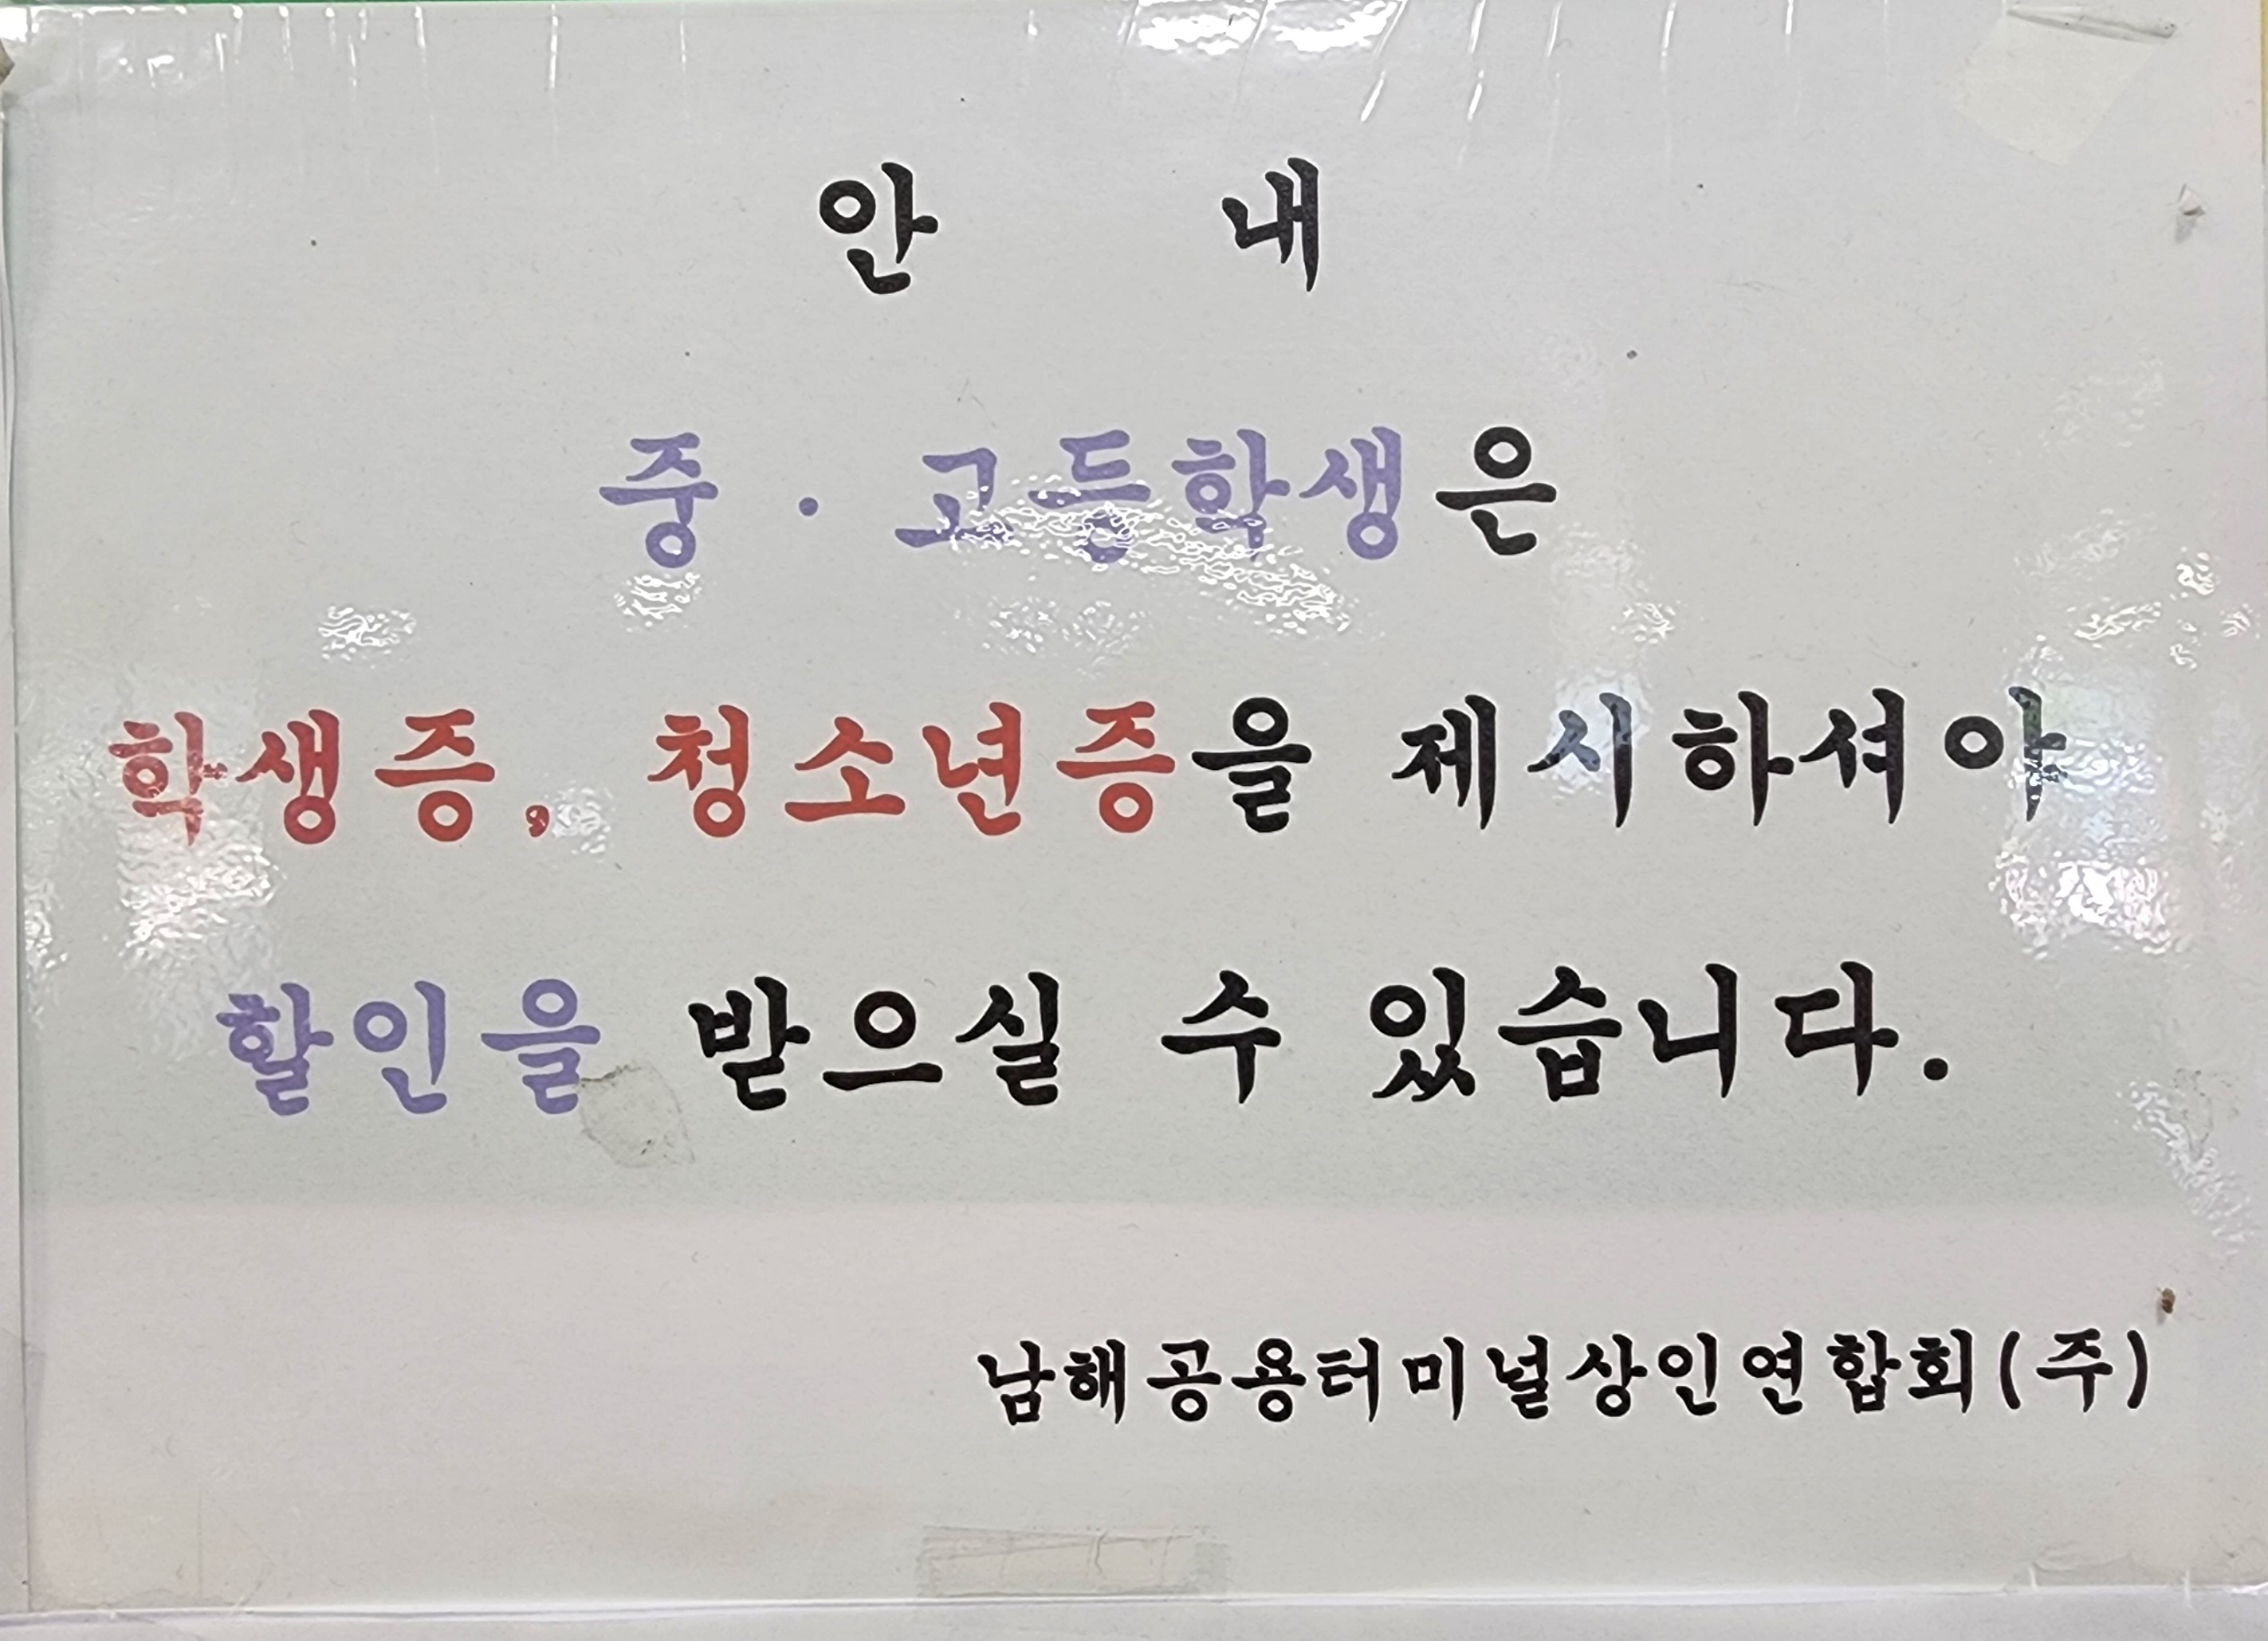 안 내
중 · 고등학생은
학생증, 청소년증을 제시하셔야
할인을 받으실 수 있습니다.
남해공용터미널상인연합회(주)